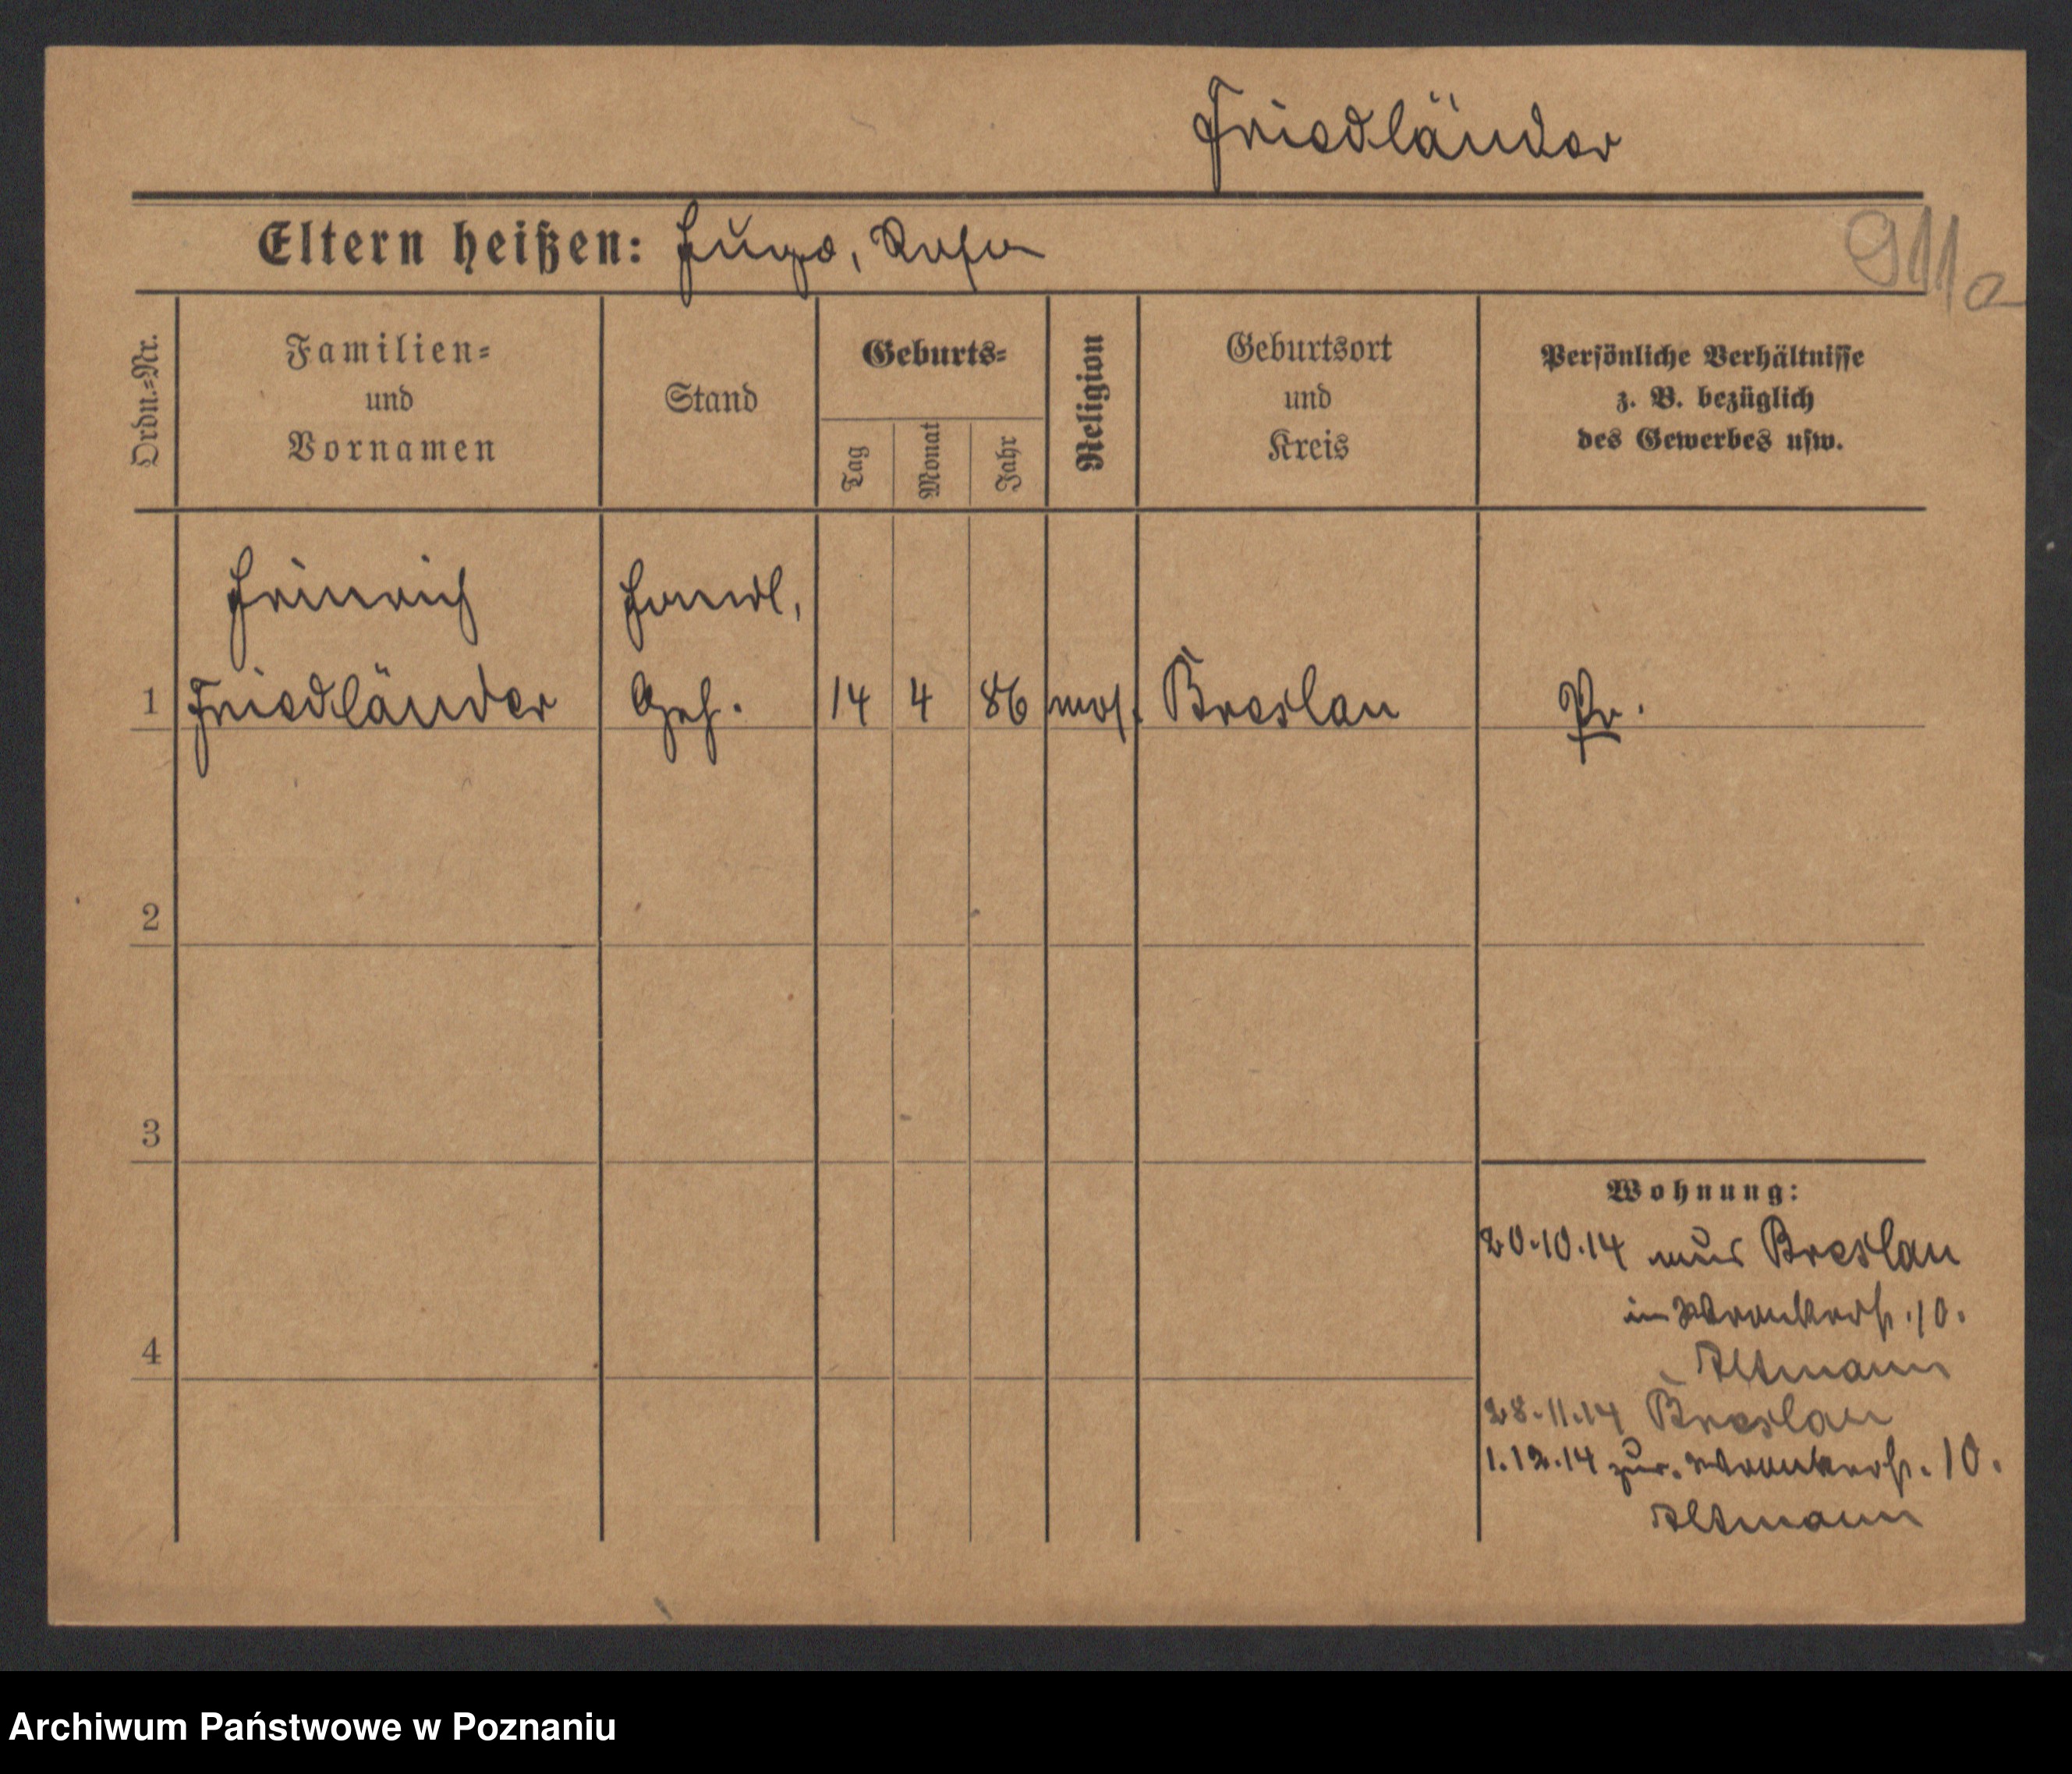 Friedländer
Eltern heißen: Hugo, Rosa
911a
Ordn.=Nr.
Familien=
und
Vornamen
Stand
Geburts=
Tag
Monat
Jahr
Religion
Geburtsort
und
Kreis
Persönliche Verhältnisse
z. B. bezüglich
des Gewerbes usw.
Heinrich
Handl,
1 Friedländer Geh. 14 4 86 mos. Breslau Pr.
2
3
4
Wohnung:
20.10.14 aus Breslau
in Wronkerstr. 10.
Altmann
28.11.14 Breslau
1.12.14 zur. Wronkerstr. 10.
Altmann
Archiwum Państwowe w Poznaniu